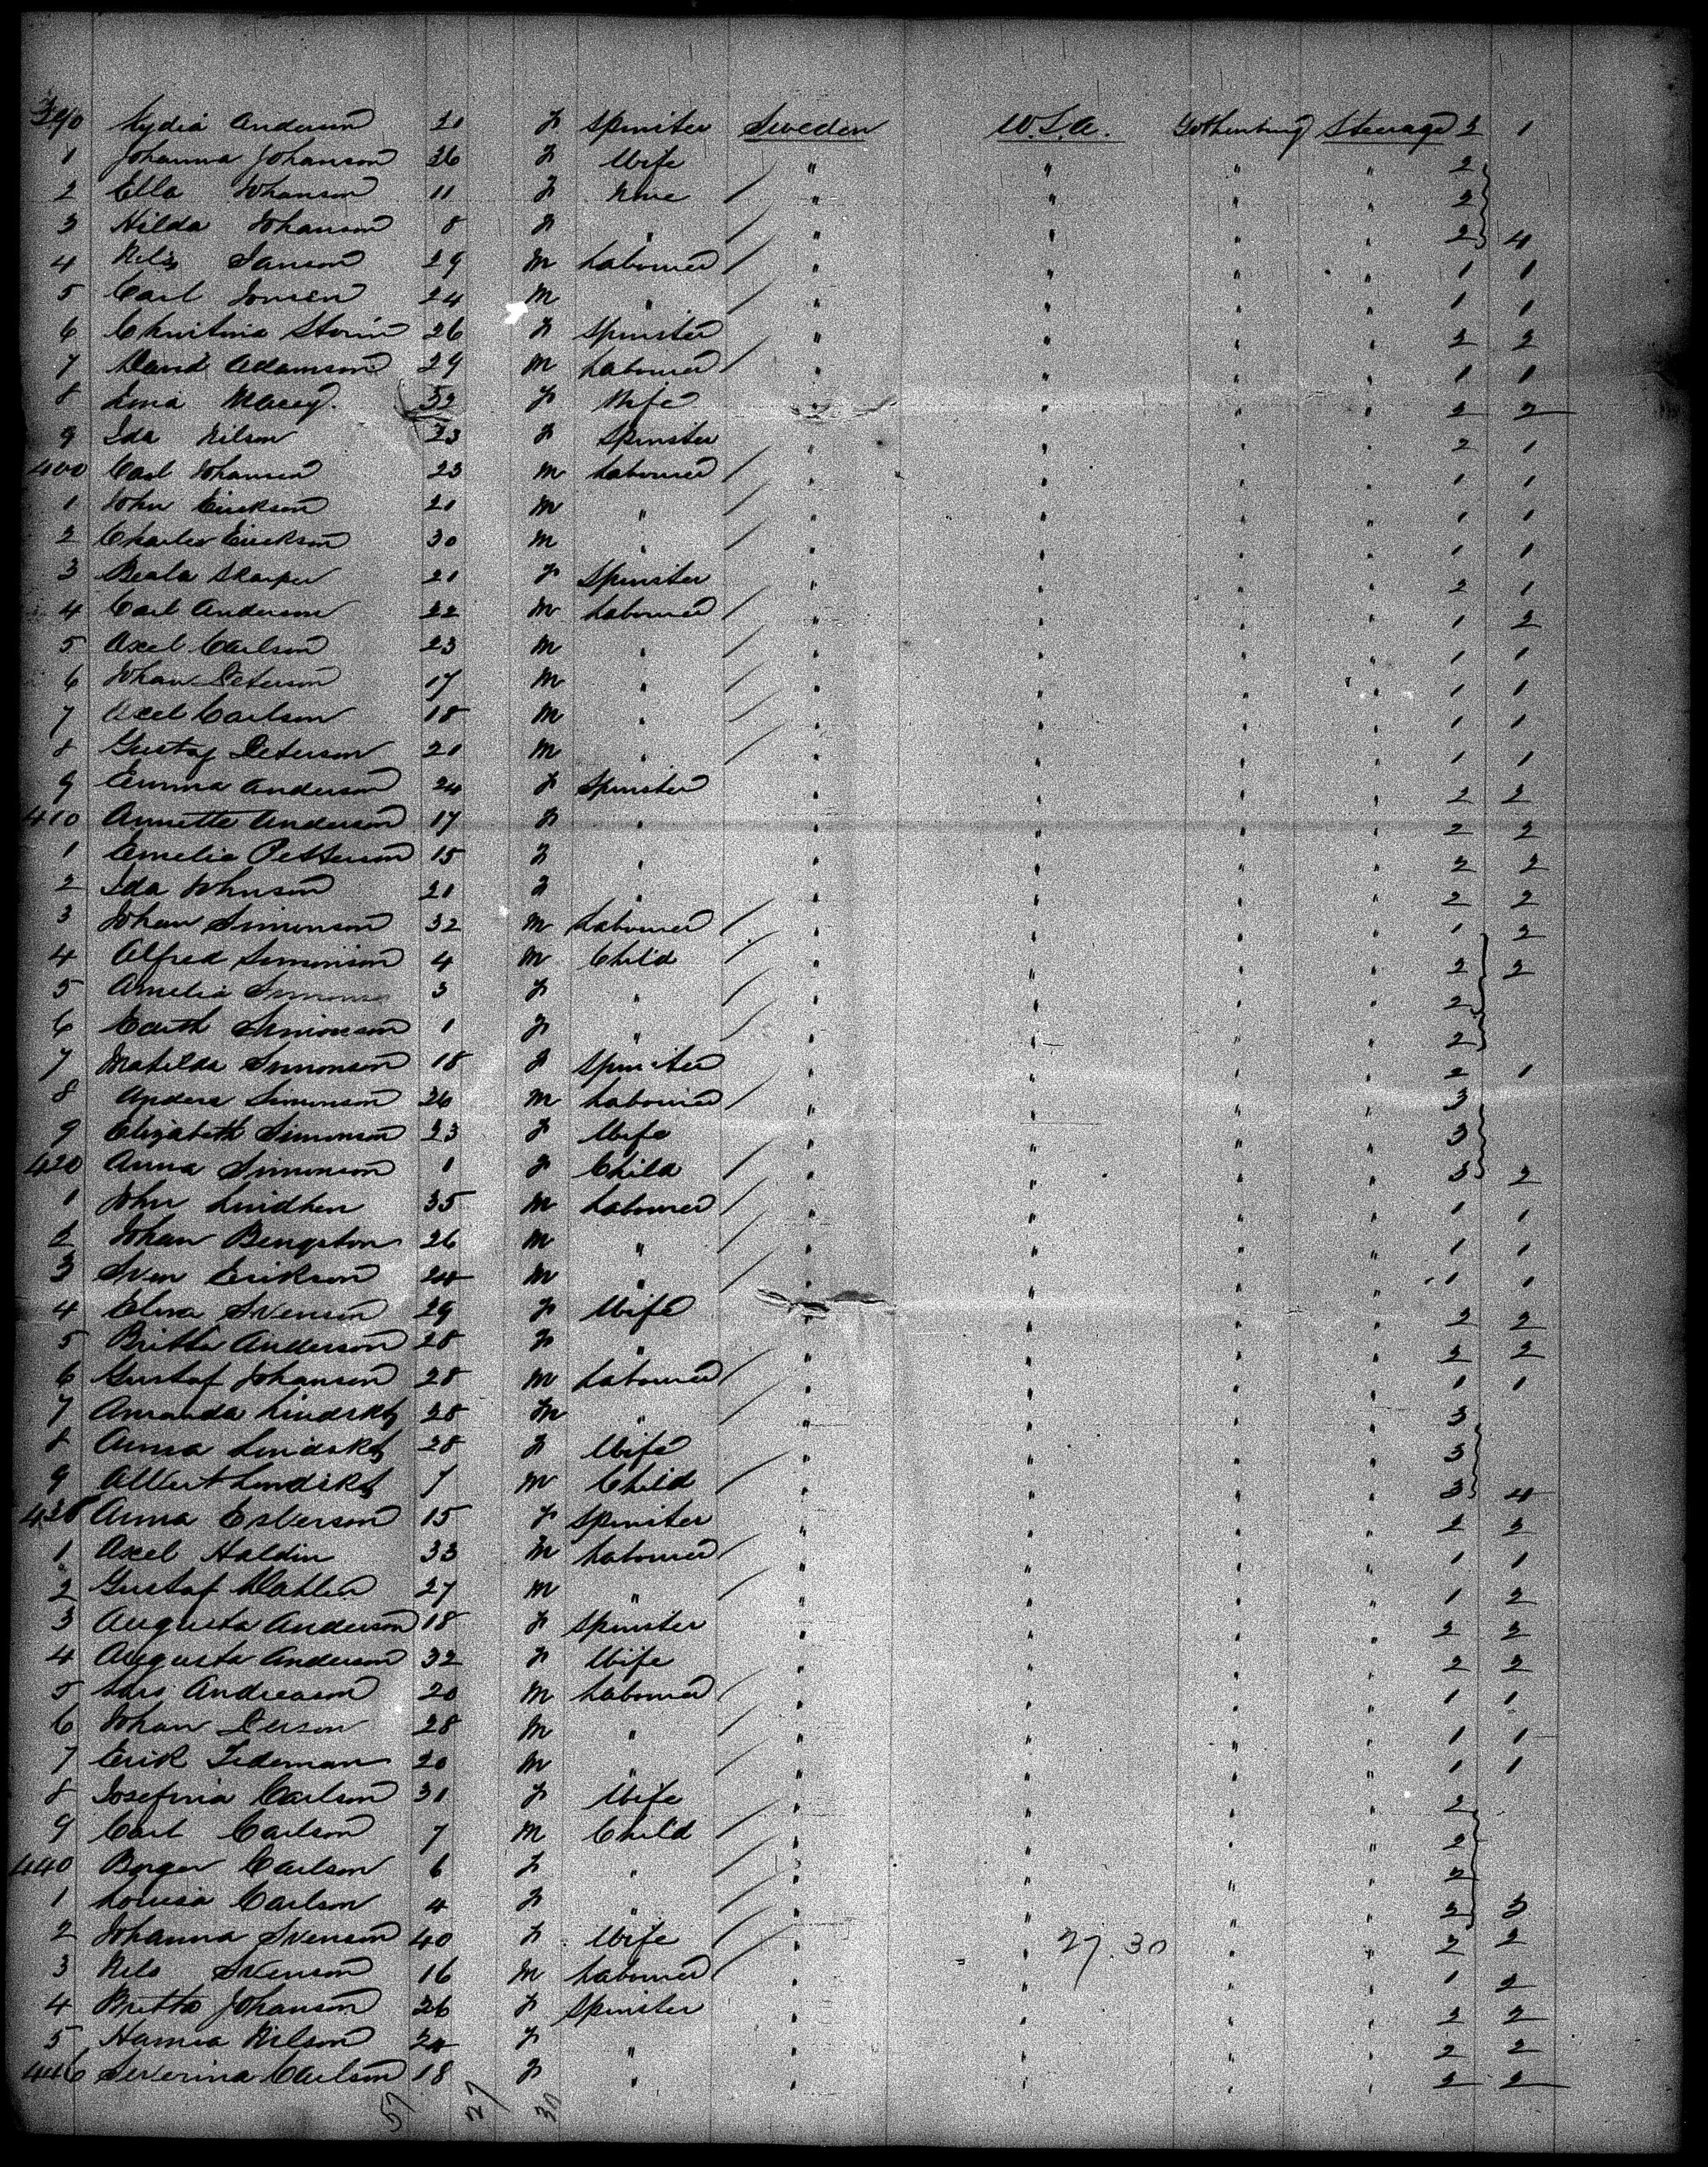 390 Lydia Anderson 21 F Spinster Sweden U.S.A. Gothenburg Steerage 2 1
1 Johanna Johanson 36 F Wife " " " " 2
2 Ella Johanson 11 F None / " " " " 2
3 Hilda Johanson 8 F " / " " " " 2 4
4 Nils Janson 29 M Labourer / " " " " 1 1
5 Carl Jonsen 24 M " / " " " " 1 1
6 Christina 26 F Spinster " " " " 2 2
7 David Adamson 29 M Labourer / " " " " 1 1
8 F Wife " " " " 2 2
9 Ida Nilson 23 F Spinster " " " " 2 1
400 Carl Johanson 23 M Labourer / " " " " 1 1
1 John Erickson 21 M " / " " " " 1 1
2 Charles Erickson 30 M " / " " " " 1 1
3 21 F Spinster " " " " 2 1
4 Carl Anderson 22 M Labourer / " " " " 1 2
5 Axel Carlson 23 M " / " " " " 1 1
6 Johan Peterson 17 M " / " " " " 1 1
7 Axel Carlson 18 M " / " " " " 1 1
8 Gustaf Peterson 21 M " / " " " " 1 1
9 Emma Anderson 24 F Spinster " " " " 2 2
410 Annette Anderson 17 F " " " " " 2 2
1 Amelia Petterson 15 F " " " " " 2 2
2 Ida Johnson 21 F " " " " " 2 2
3 Johan Simonson 32 M Labourer / " " " " 1 2
4 Alfred Simonson 4 M Child / " " " " 2 2
5 Amelia Simonson 3 F " / " " " " 2
6 Edith Simonson 1 F " / " " " " 2
7 Matilda Simonson 18 F Spinster " " " " 2 1
8 Anders Simonson 26 M Labourer / " " " " 3
9 Elizabeth Simonson 23 F Wife " " " " 3
420 Anna Simonson 1 F Child / " " " " 3 2
1 John 35 M Labourer / " " " " 1 1
2 Johan Bengston 26 M " / " " " " 1 1
3 Sven Erikson 24 M " / " " " " 1 1
4 Elma Svenson 29 F Wife " " " " 2 2
5 Britta Anderson 28 F " " " " " 2 2
6 Gustaf Johanson 28 M Labourer / " " " " 1 1
7 Amanda 28 M " / " " " " 3
8 Anna 28 F Wife " " " " 3
9 Albert 7 M Child / " " " " 3 4
430 Anna Esberson 15 F Spinster " " " " 2 2
1 Axel Haldin 33 M Labourer / " " " " 1 1
2 Gustaf 27 M " / " " " " 1 2
3 Augusta Anderson 18 F Spinster " " " " 2 2
4 Augusta Anderson 32 F Wife " " " " 2 2
5 Lars Andreason 20 M Labourer / " " " " 1 1
6 Johan 28 M " / " " " " 1 1
7 Erik Tedeman 20 M " / " " " " 1 1
8 Josefina Carlson 31 F Wife " " " " 2
9 Carl Carlson 7 M Child / " " " " 2
440 Birger Carlson 6 F " / " " " " 2
1 Lovisa Carlson 4 F " / " " " " 2 3
2 Johanna Svenson 40 F Wife / " " 27.30 " " 2 2
3 Nils Svenson 16 M Labourer / " " " " 1 2
4 Britta Johanson 26 F Spinster " " " " 2 2
5 Hanna Nilson 20 F " " " " " 2 2
446 Severina Carlson 18 F " " " " " 2 2
57 27 30